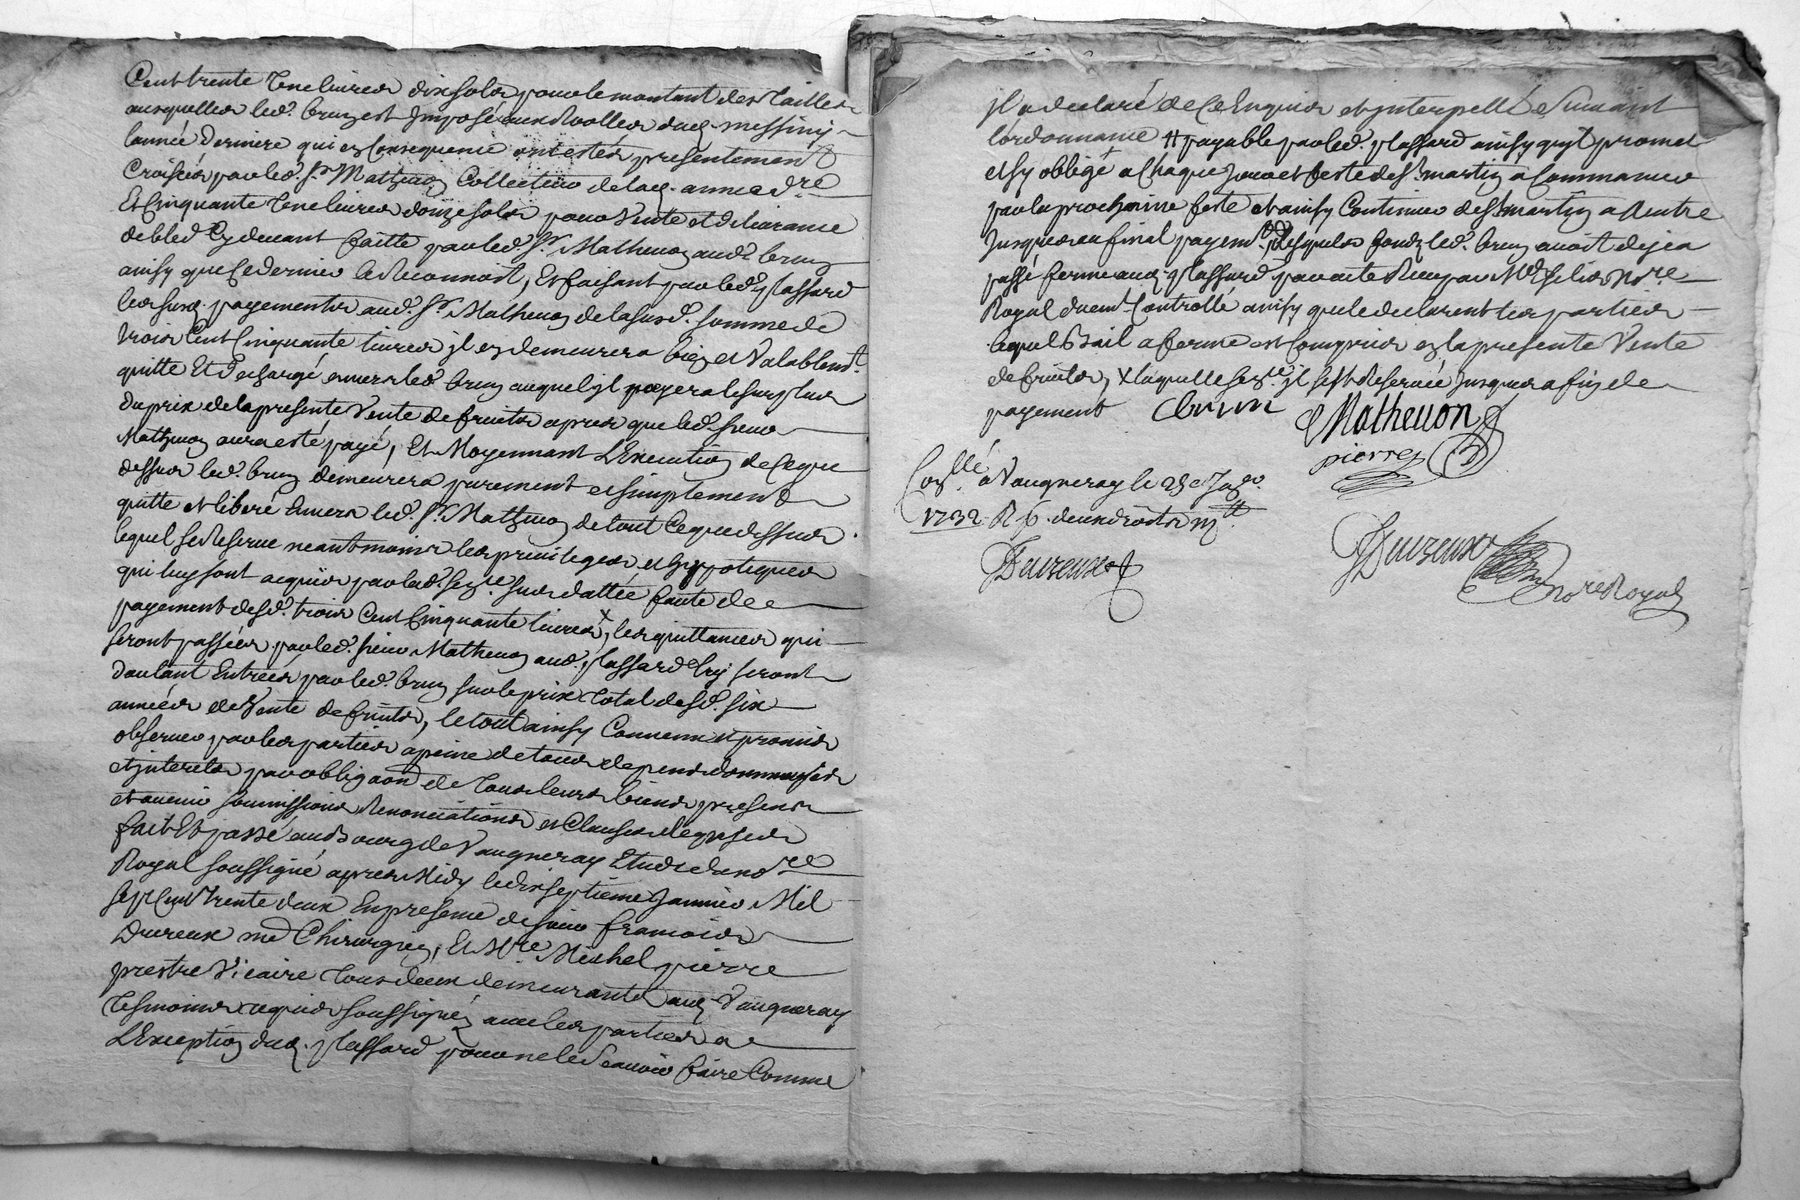 Cent trente une livres dix sols pour le montant des Tailles
ausquelles led. brun est Imposé aux Roolles dud. messimy
lannée derniere qui en Consequence ont estés presentement
Croisées par led. Sr. Mathevon Collecteur de lad. année dre
Et Cinquante une livres douze sols pour Vente et delivrance
de bled Cy devant faitte par led. Sr. Mathevon aud. brun
ainsy que Ce dernier le Reconnoit, Et faisant par led. plassard
les susd. payements aud. Sr. Mathevon de la susd. somme de
trois Cent Cinquante livres jl en demeurera bien et Valablemt.
quitte Et dechargé envers led. brun auquel jl payera le surplus
du prix de la presente Vente de fruits apres que led. sieur
Mathevon aura esté payé, Et Moyennant LExecution de Ceque
dessus led. brun demeurera purement et simplement
quitte et liberé Envers led. Sr. Mathevon de tout Ceque dessus
lequel se Reserve neantmoins les privileges et hypoteques
qui luy sont acquis par lad. sur datté faute de
payement desd. trois Cent Cinquante livres X, les quittances qui
seront passées par led. sieur Mathevon aud. plassard luy seront
dautant Entrées par led. brun sur le prix Total desd. six
années de Vente de fruits, le tout ainsy Convenu et promis
observer par les parties a peine de tous depens dommages
et jnterets par obligaon de Tous leurs biens presents
et avenir soumissions Renonciations et Clauses Requises
fait Et passé au Bourg de Vaugneray Etude du nore
Royal soussigné apres Midy le dix septieme Janvier Mil
sept Cent Trente deux En presence de sieur francois
Dureux me Chirurgien, Et Mre. Michel pierre
prestre Vicaire Tous deux demeurants aud. Vaugneray
Tesmoins requis soussignés avec les parties a
LException dud. plassard pour ne le Scavoir faire Comme
jl a declaré de Ce Enquis et jnterpellé Suivant
lordonnance # payable par led. plassard ainsy quil promet
et sy obligé a Chaque jour et feste de St. martin a Commancer
par la prochaine feste et ainsy Continuer de St martin a autre
Jusques au final payemt. desquels fonds led. brun avoit deja
passé ferme aud. plassard par acte Receu par Me nore
Royal duemt. Controllé ainsy que le declarent les parties
lequel Bail a ferme est Compris en la presente Vente
de fruits, X laquelle jl sest Reservée jusques a fin de
payement Cbrun Mathevon
pierre
Conllé. a Vaugneray le 28e Janer.
1732 R
Dureux
Dureux
nore Royal